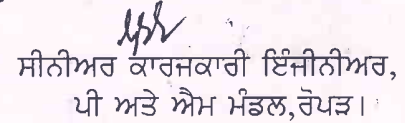 ਸੀਨੀਅਰ ਕਾਰਜਕਾਰੀ ਇੰਜੀਨੀਅਰ,
ਪੀ ਅਤੇ ਐਮ ਮੰਡਲ,ਰੋਪੜ।